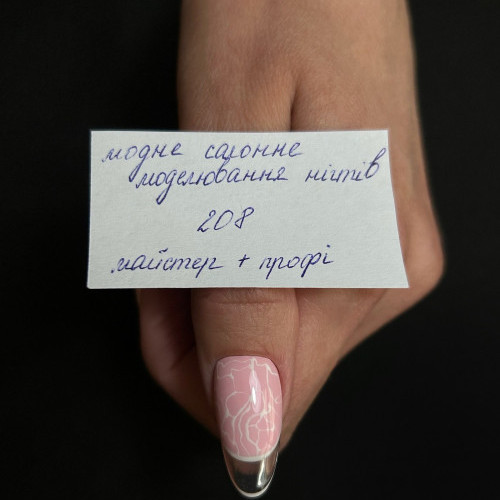 модне салонне
моделювання нігтів
208
майстер + профі